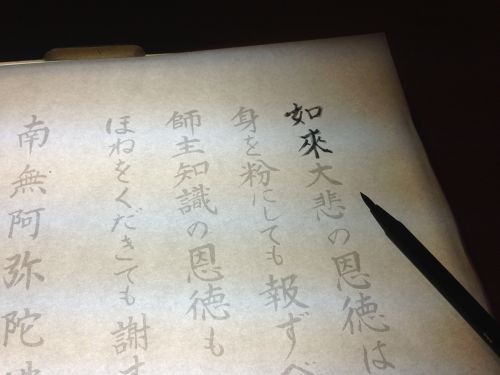 如來大悲の恩徳は
身を粉にしても報ずべ
師主知識の恩徳も
ほねをくだきても謝す
南無阿弥陀